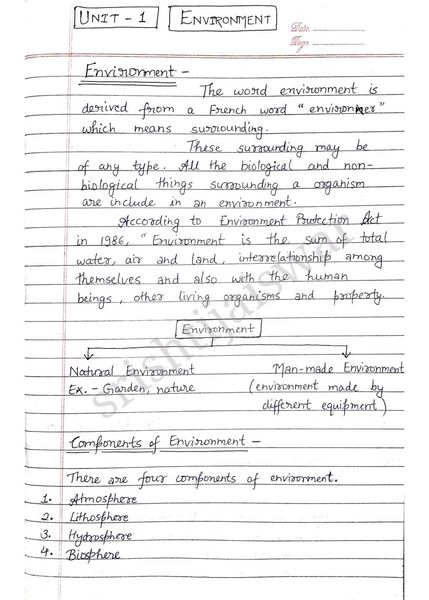 UNIT - 1 ENVIRONMENT
Date:
Page:
Environment -
The word environment is
derived from a French word "environner"
which means surrounding.
These surrounding may be
of any type. All the biological and non-
biological things surrounding a organism
are include in an environment.
According to Environment Protection Act
in 1986, "Environment is the sum of total
water, air and land, interrelationship among
themselves and also with the human
beings, other living organisms and property.
Environment
Natural Environment Man-made Environment
Ex. - Garden, nature (environment made by
different equipment)
Components of Environment -
There are four components of envirorment.
1. Atmosphere
2. Lithosphere
3. Hydrosphere
4. Biosphere
srishtijaiswar